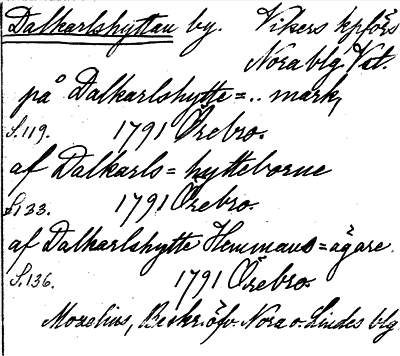 Dalkarlshyttan by. Vikers kpförs
Nora blg. Vst.
på Dalkarlshytte=.. mark,
S.119. 1791 Örebro.
af Dalkarls=hytteborne
S.133. 1791 Örebro.
af Dalkarlshytte Hemmans=ägare.
S.136. 1791 Örebro.
Moxelius, Beskr. öfv. Nora o. Lindes blg